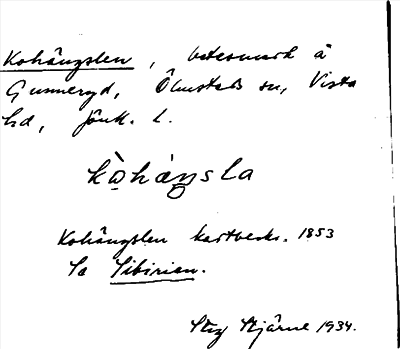 Kohängslen, betesmark å
Gunneryd, Ölmstads sn, Vista
hd, Jönk. l.
kòhàŋsla
Kohängslen kartbeskr. 1853
Se Sibirien.
Stig Stjärne 1934.